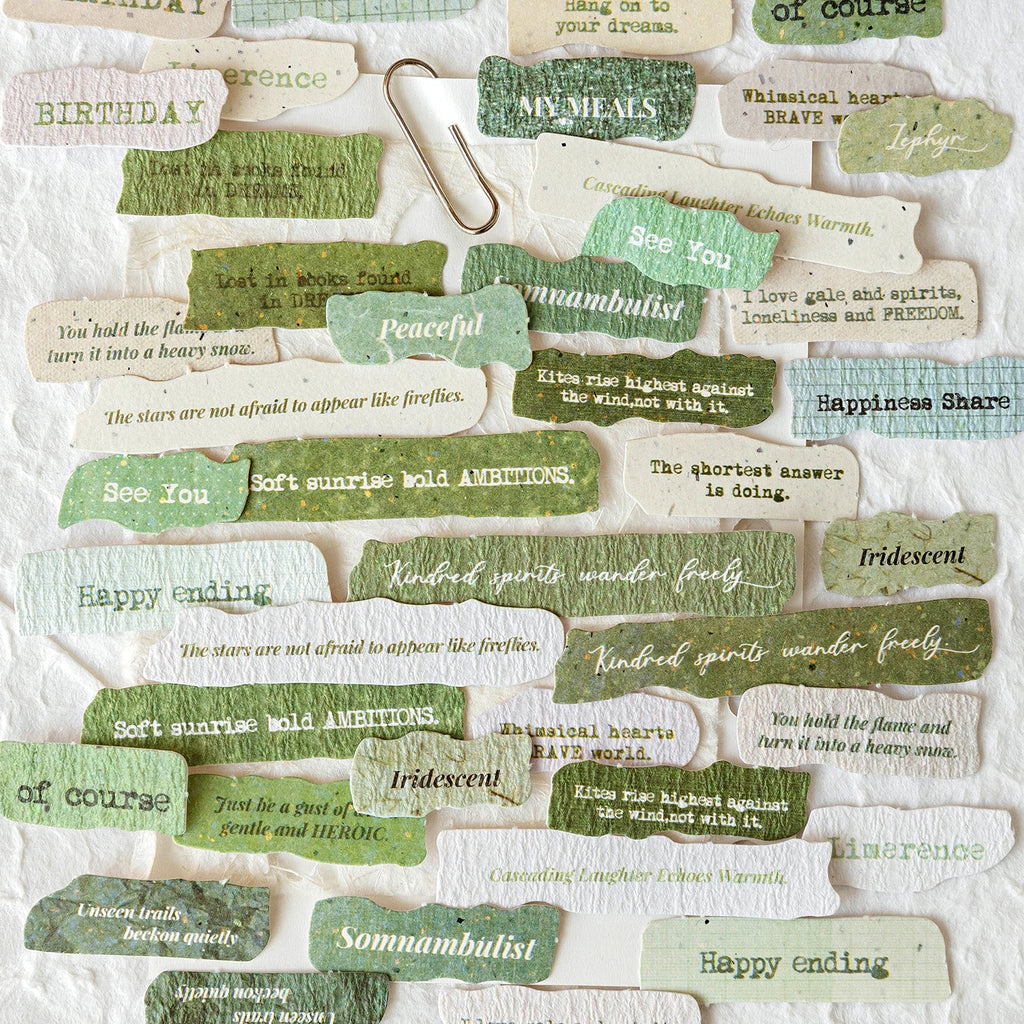 BIRTHDAY
Hang on to
your dreams.
of course
Limerence
BIRTHDAY
MY MEALS
Whimsical hearts
BRAVE
Zephyr
Lost in books found
in DREAMS.
Cascading Laughter Echoes Warmth.
See You
Lost in books found
in
Somnambulist
I love gale and spirits,
loneliness and FREEDOM.
You hold the
turn it into a heavy snow.
Peaceful
The stars are not afraid to appear like fireflies.
Kites rise highest against
the wind,not with it.
Happiness Share
See You
Soft sunrise hold AMBITIONS.
The shortest answer
is doing.
Iridescent
Happy ending
Kindred spirits wander freely
The stars are not afraid to appear like fireflies.
Kindred spirits wander freely
Soft sunrise hold AMBITIONS.
Whimsical hearts
BRAVE world.
You hold the flame and
turn it into a heavy snow.
of course
Just be a gust of
gentle and HEROIC.
Iridescent
Kites rise highest against
the wind,not with it.
Limerence
Cascading Laughter Echoes Warmth.
Unseen trails
beckon quietly
Somnambulist
Happy ending
Unseen trails
beckon quietly